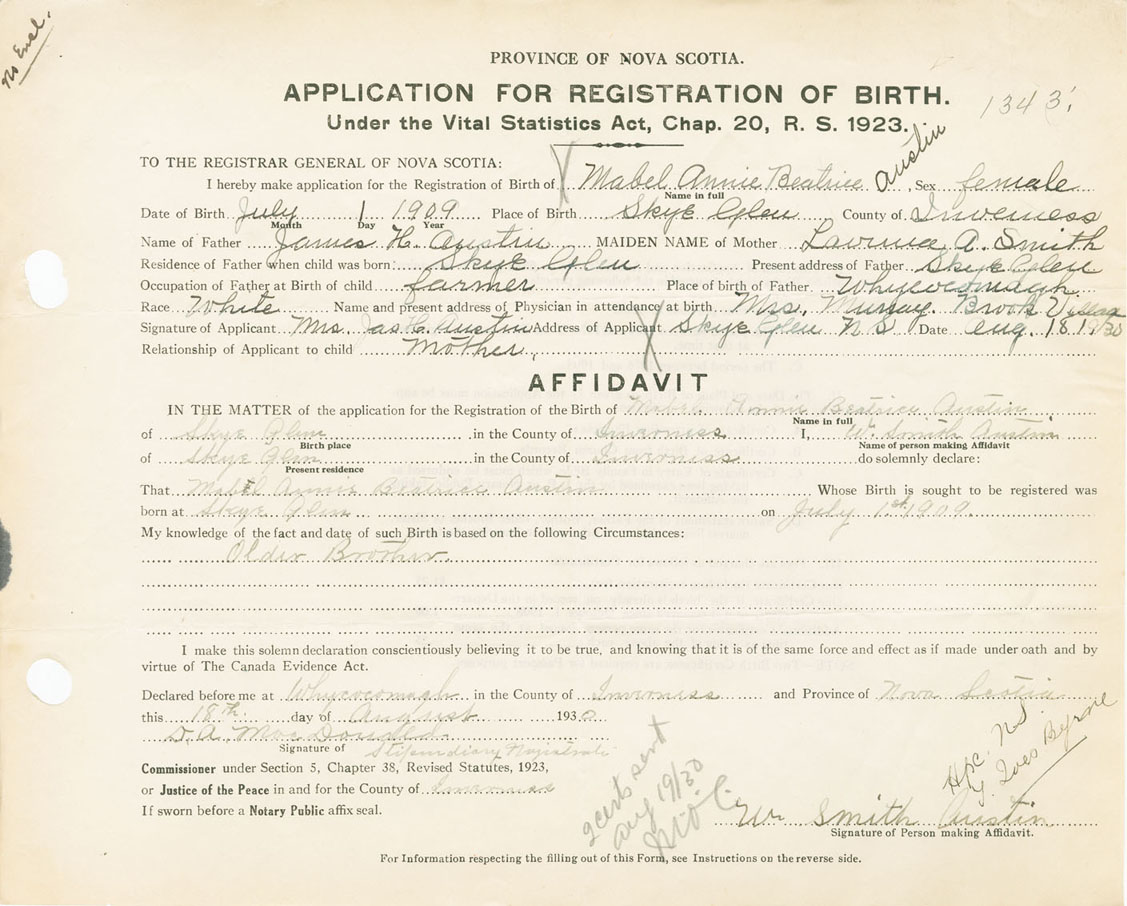 No Encl.
PROVINCE OF NOVA SCOTIA.
APPLICATION FOR REGISTRATION OF BIRTH.
1343
Under the Vital Statistics Act, Chap. 20, R. S. 1923.
TO THE REGISTRAR GENERAL OF NOVA SCOTIA:
I hereby make application for the Registration of Birth of X Mabel Annie Beatrice Austin, Sex female
Name in full
Date of Birth July 1 1909 Place of Birth Skye Glen County of Inverness
Month Day Year
Name of Father James H. Austin MAIDEN NAME of Mother A. Smith
Residence of Father when child was born: Skye Glen Present address of Father Skye Glen
Occupation of Father at Birth of child farmer Place of birth of Father Whycocomagh
Race White Name and present address of Physician in attendance at birth Mrs. Murray. Brook Village
Signature of Applicant Mrs. Jas H. Austin Address of Applicant X Skye Glen N S Date Aug. 18 1930
Relationship of Applicant to child Mother
AFFIDAVIT
IN THE MATTER of the application for the Registration of the Birth of Mabel Annie Beatrice Austin
Name in full
of Skye Glen in the County of Inverness I, W. Smith Austin
Birth place Name of person making Affidavit
of Skye Glen in the County of Inverness do solemnly declare:
Present residence
That Mabel Annie Beatrice Austin Whose Birth is sought to be registered was
born at Skye Glen on July 1st 1909
My knowledge of the fact and date of such Birth is based on the following Circumstances:
Older Brother
I make this solemn declaration conscientiously believing it to be true, and knowing that it is of the same force and effect as if made under oath and by
virtue of The Canada Evidence Act.
Declared before me at Whycocomagh in the County of Inverness and Province of Nova Scotia
this 18th day of August 1930
D. A. MacDougall
Signature of Stipendiary Magistrate
Commissioner under Section 5, Chapter 38, Revised Statutes, 1923,
or Justice of the Peace in and for the County of Inverness
If sworn before a Notary Public affix seal.
2 certs sent
Aug 19/30
N.S.
Byrne
Wm Smith Austin
Signature of Person making Affidavit.
For Information respecting the filling out of this Form, see Instructions on the reverse side.